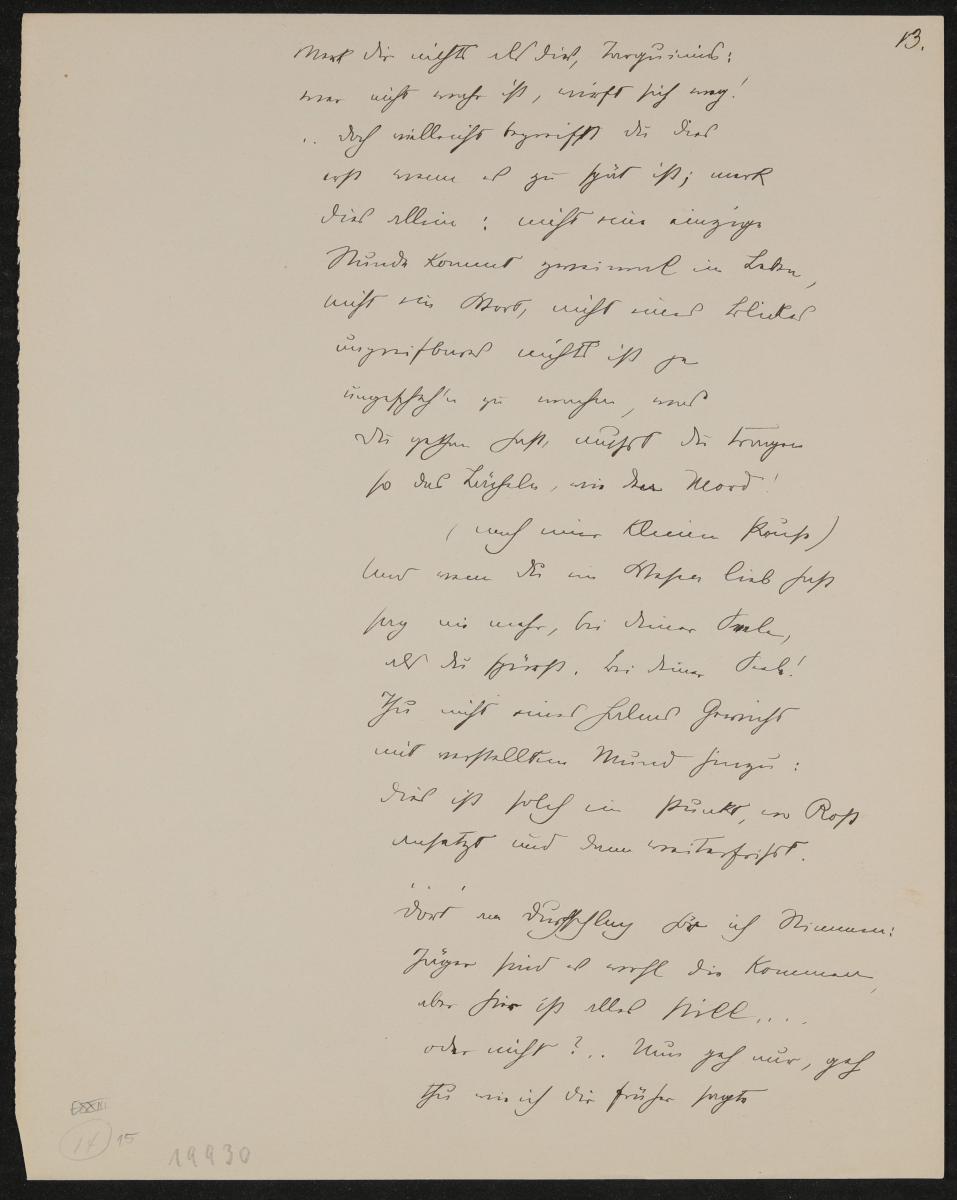 13.
Merk dir nichts als dies, Tarquinius:
wer nicht wahr ist, wirft sich weg!
.. doch vielleicht begreifst du dies
erst wenn es zu spät ist; merk
dies allein: nicht eine einzige
Stunde kommt zweimal im Leben,
nicht ein Wort, nicht eines Blickes
ungreifbares nichts ist je
ungescheh'n zu machen, was
du gethan hast, musst du tragen
so das Lächeln, wie den Mord!
(nach einer kleinen Pause)
Und wenn du ein Wesen lieb hast
sag nie mehr, bei deiner Seele,
als du spürst. bei deiner Seel!
Thu nicht eines Halms Gewicht
mit verstelltem Mund hinzu:
dies ist solch ein Punkt, wo Rost
ansetzt und dann weiterfrisst.
Dort am Durchschlag hör ich Stimmen:
Jäger sind es wohl die kommen,
aber hier ist alles still....
oder nicht?.. Nun geh nur, geh
thu wie ich dir früher sagte
14 15
19930